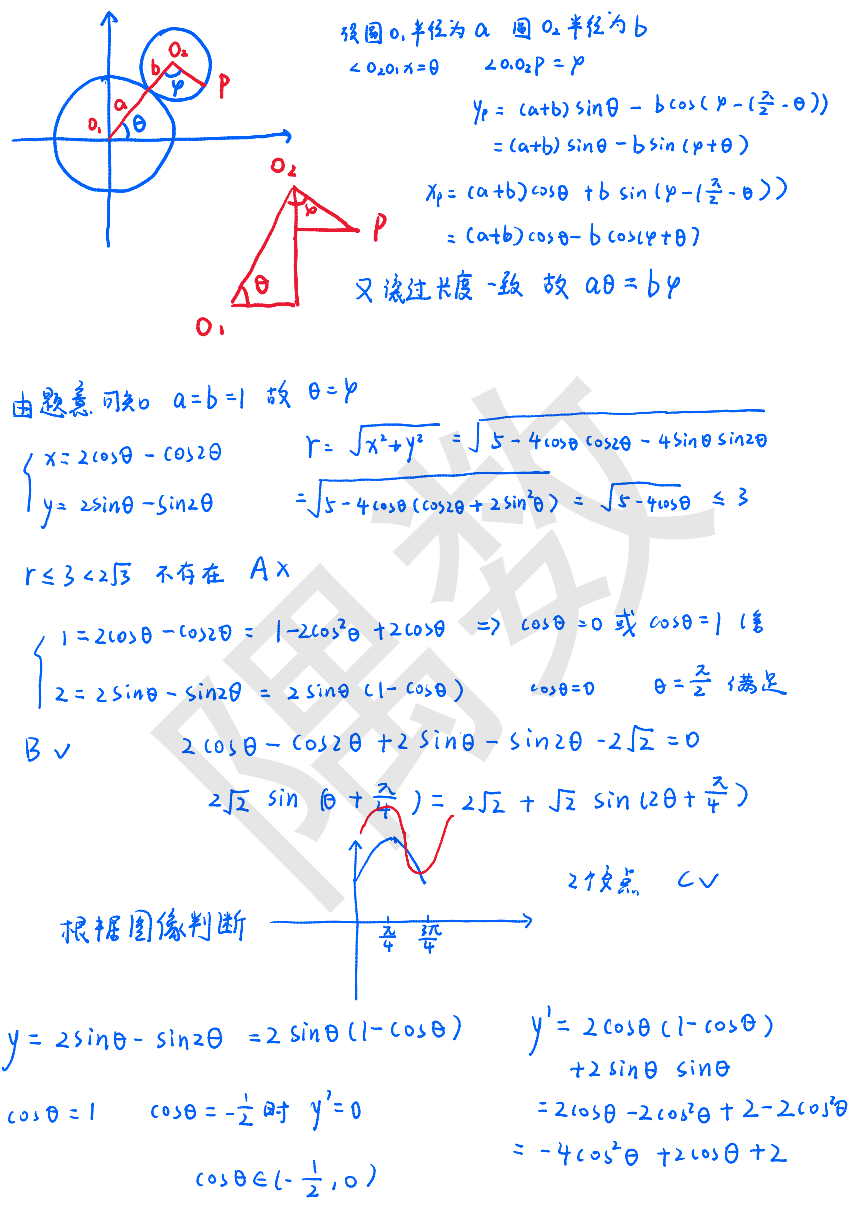 设圆O₁半径为a 圆O₂半径为b
∠O₂O₁x=θ ∠O₁O₂P=φ
O₂
b
φ
P
a
O₁
θ
yₚ = (a+b)sinθ - bcos(φ-(π/2-θ))
=(a+b)sinθ-bsin(φ+θ)
O₂
φ
P
θ
O₁
xₚ=(a+b)cosθ+bsin(φ-(π/2-θ))
=(a+b)cosθ-bcos(φ+θ)
又滚过长度一致 故 aθ=bφ
由题意可知 a=b=1 故 θ=φ
{ x=2cosθ-cos2θ
y=2sinθ-sin2θ
r=√(x²+y²) =√(5-4cosθcos2θ-4sinθsin2θ)
=√(5-4cosθ(cos2θ+2sin²θ)) = √(5-4cosθ) ≤ 3
r≤3<2√3 不存在 A×
{ 1=2cosθ-cos2θ= 1-2cos²θ+2cosθ ⇒ cosθ=0 或 cosθ=1 (舍
2=2sinθ-sin2θ = 2sinθ(1-cosθ) cosθ=0 θ=π/2 满足
B√ 2cosθ-cos2θ+2sinθ-sin2θ-2√2=0
2√2 sin(θ+π/4)=2√2+√2 sin(2θ+π/4)
2个交点 C√
根据图像判断
π/4
3π/4
y=2sinθ-sin2θ =2sinθ(1-cosθ)
y'=2cosθ(1-cosθ)
+2sinθ sinθ
=2cosθ-2cos²θ+2-2cos²θ
=-4cos²θ+2cosθ+2
cosθ=1 cosθ=-1/2时 y'=0
cosθ∈(-1/2,0)
隅数